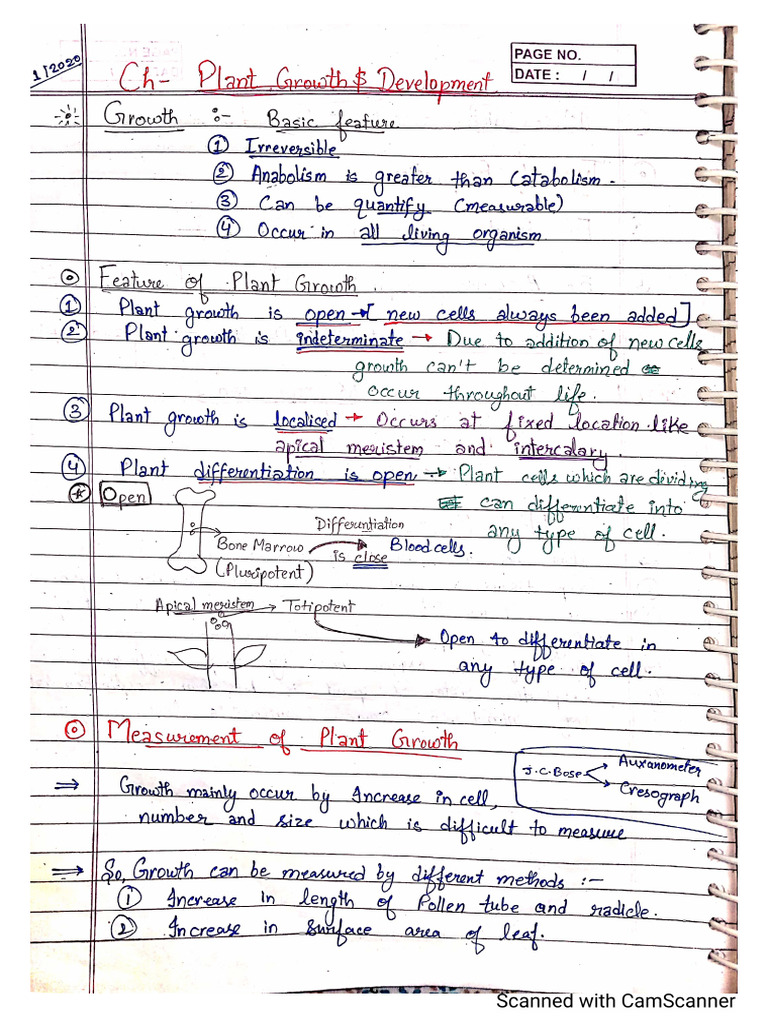 1/2020
PAGE NO.
DATE : / /
Ch- Plant Growth & Development
Growth :- Basic feature
① Irreversible
② Anabolism is greater than Catabolism.
③ Can be quantify (measurable)
④ Occur in all living organism
Feature of Plant Growth.
① Plant growth is open → [new cells always been added]
② Plant growth is indeterminate → Due to addition of new cells
growth can't be determined
occur throughout life.
③ Plant growth is localised → Occurs at fixed location like
apical meristem and intercalary.
④ Plant differentiation is open → Plant cells which are dividing
can differentiate into
any type of cell.
Open
Differentiation
Bone Marrow → Blood cells.
is close
(Pluripotent)
Apical meristem → Totipotent
Open to differentiate in
any type of cell.
Measurement of Plant Growth
J.C. Bose
Auxanometer
Cresograph
⇒ Growth mainly occur by Increase in cell,
number and size which is difficult to measure
⇒ So, Growth can be measured by different methods :-
① Increase in length of Pollen tube and radicle.
② Increase in surface area of leaf.
Scanned with CamScanner